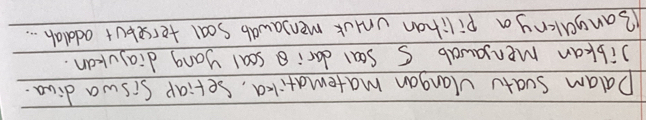 Dalam suatu ulangan matematika, setiap siswa diwa-
jibkan menjawab 5 soal dari 8 soal yang diajukan.
Banyaknya pilihan untuk menjawab soal tersebut adalah ...